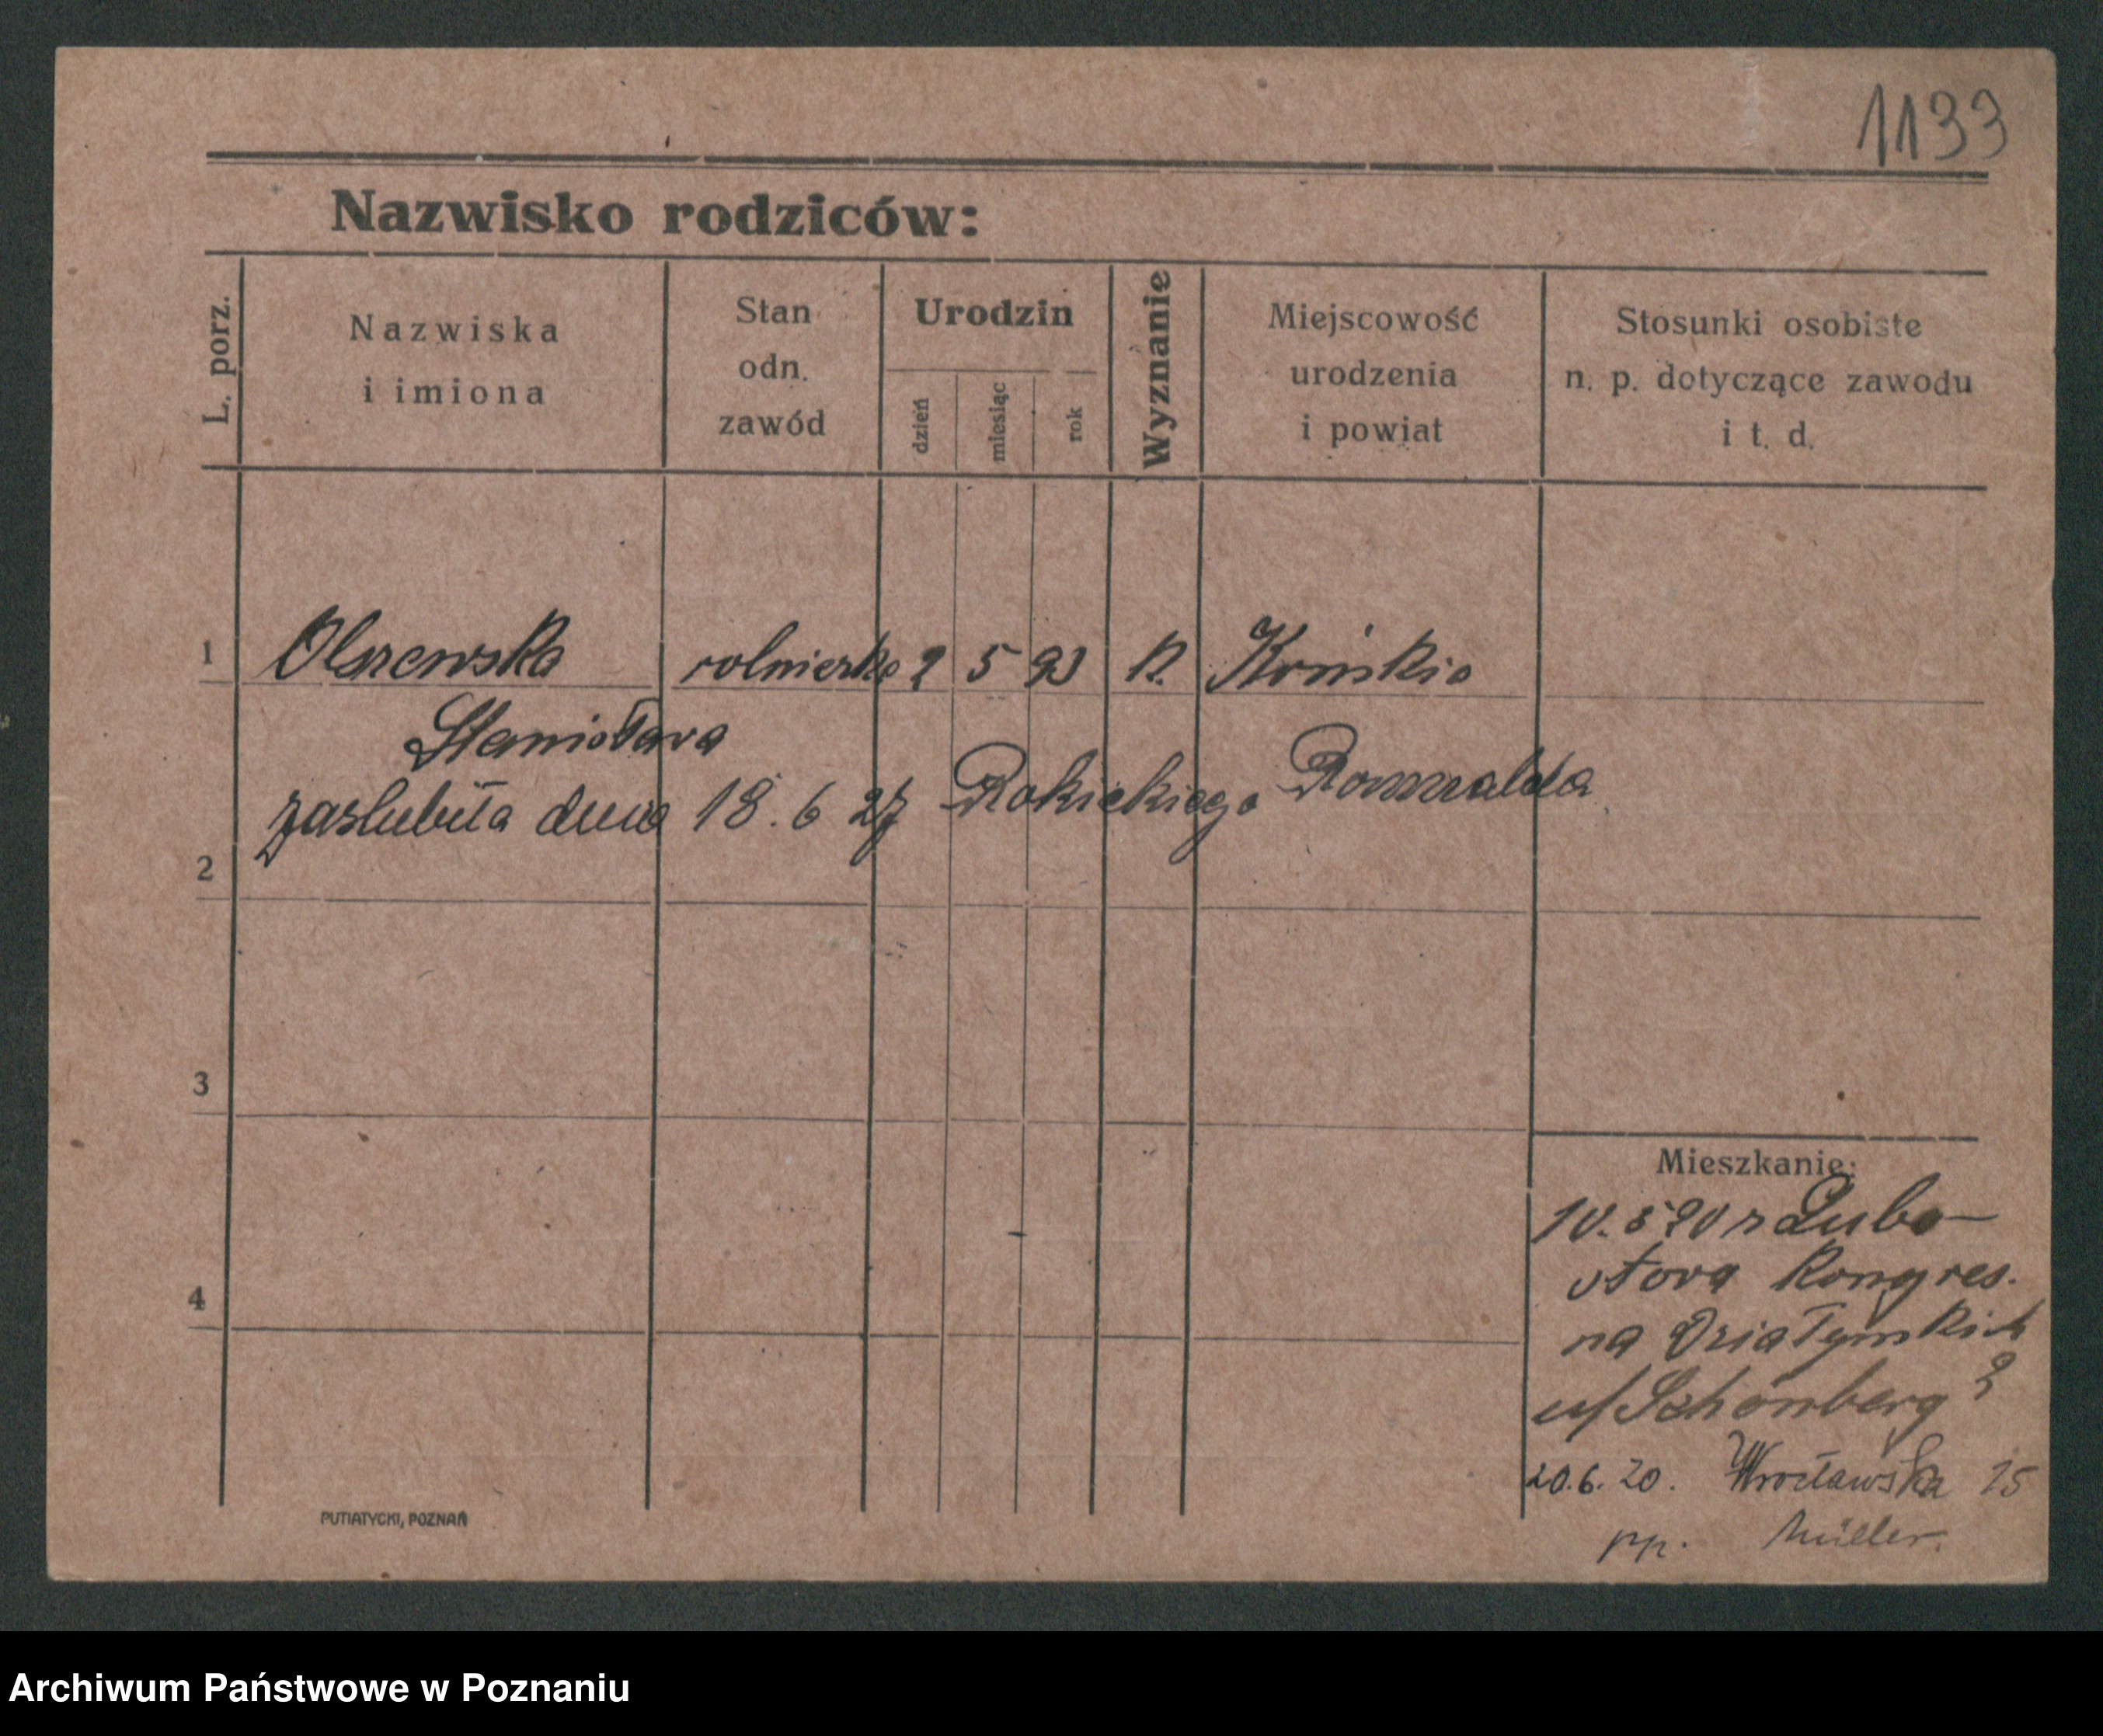 1133
Nazwisko rodziców:
L. porz.
Nazwiska
i imiona
Stan
odn.
zawód
Urodzin
dzień
miesiąc
rok
Wyznanie
Miejscowość
urodzenia
i powiat
Stosunki osobiste
n. p. dotyczące zawodu
i t. d.
1 Olszewska rolnierka 2 5 93 K. Końskie
Stanisława
zaslubiła dnia 18. 6 27 Rokickiego Romualda
2
3
4
Mieszkanie:
10. 5 20 z Lubo-
Kongres.
na Działyńskich
u/ Schönberg
20. 6. 20. Wrocławska 15
pp. Müller.
PUTIATYCKI, POZNAŃ
Archiwum Państwowe w Poznaniu